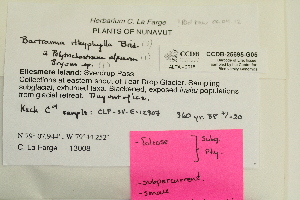 Herbarium C. La Farge
PLANTS OF NUNAVUT
Bartramia ithyphylla Brid.
Polytrichastrum alpinum
Bryum sp.
CCDB-25695-G06
Ellesmere Island: Sverdrup Pass
Collections at eastern snout of Teardrop Glacier. Sampling
subglacial, exhumed taxa. Blackened, exposed populations
from glacial retreat.
sample: CLP-SV-E-12907
360 yr. BP +/-20
W 79° 14.252'
C. La Farge 13008
- Falcose
Subg.
- subpercurrent
- small